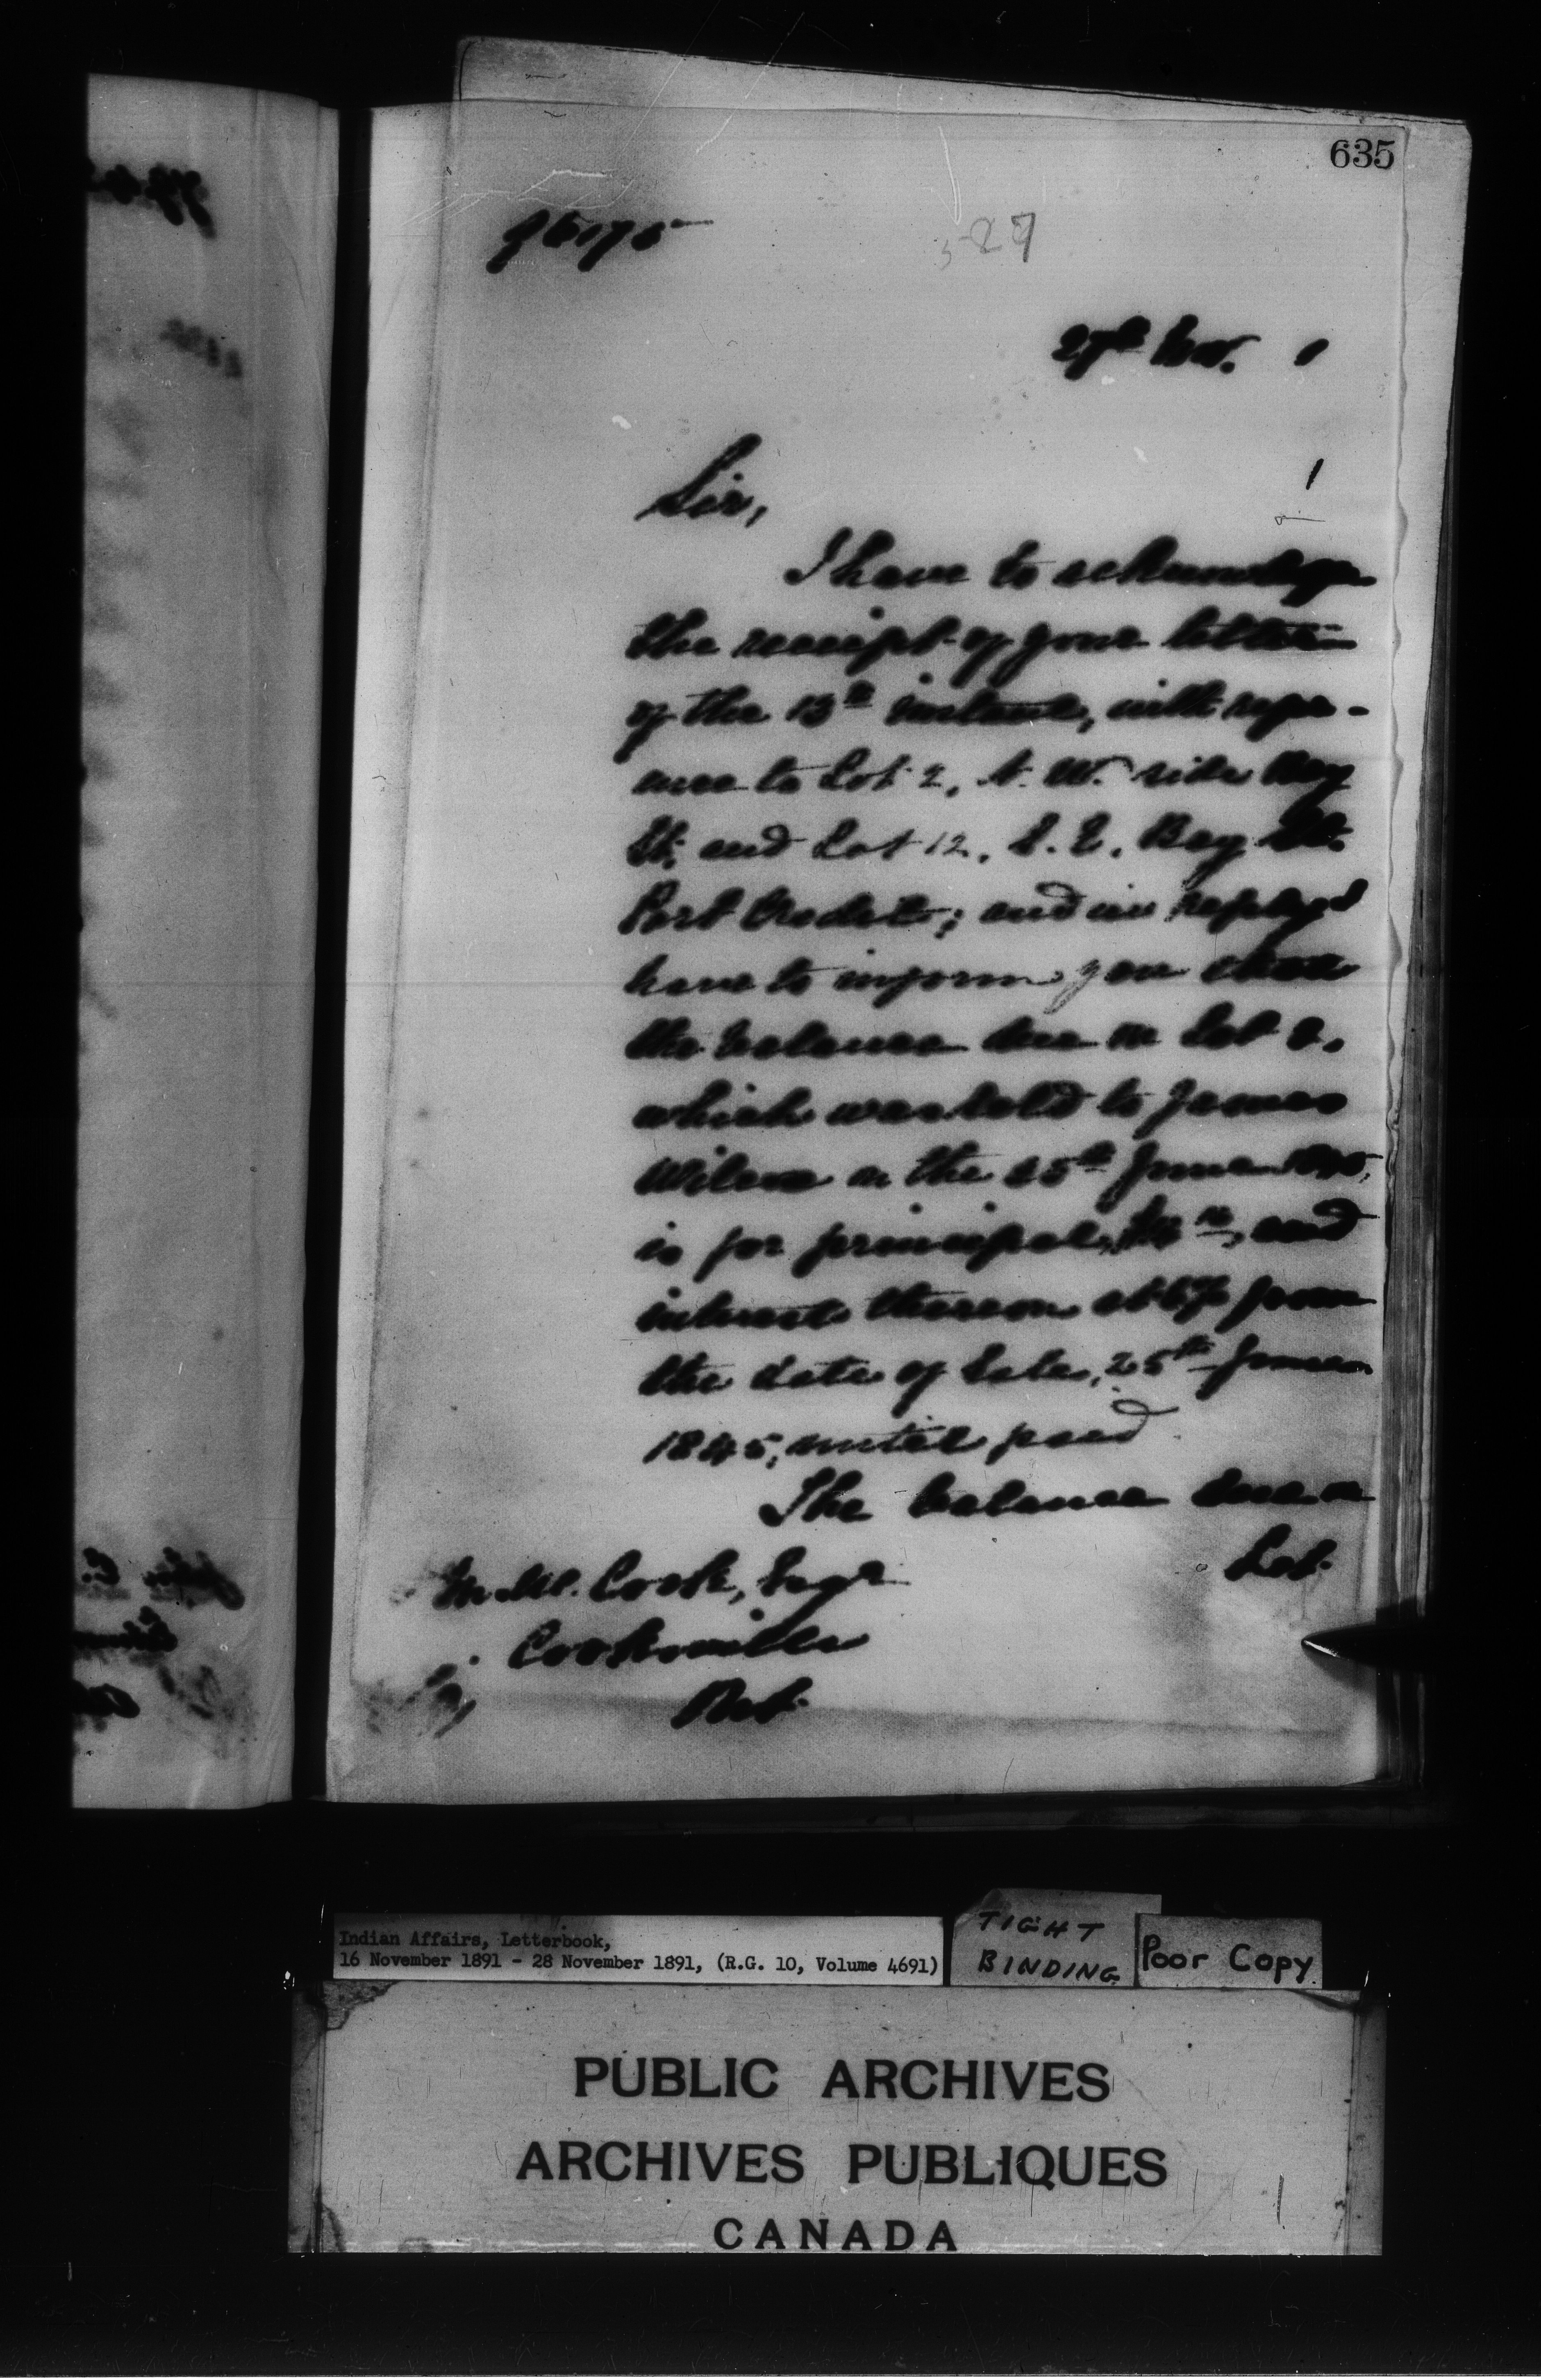 635
96175
527
27th Nov. 1
Sir,
I have to acknowledge
the receipt of your letter
of the 13th instant, with refer-
ence to Lot 2, N. W. side Bay
St. and Lot 12, S. E. Bay St.
Port Credit; and in reply I
have to inform you that
the balance due on Lot 2,
which was sold to James
Wilcox on the 25th June 1845,
is for principal, and
interest thereon at 6% from
the date of Sale, 25th June
1845, until paid
The balance due on
Lot
M. W. Cook, Esqr
Cooksville
Ont.
Indian Affairs, Letterbook,
16 November 1891 - 28 November 1891, (R.G. 10, Volume 4691)
TIGHT
BINDING
Poor Copy
PUBLIC ARCHIVES
ARCHIVES PUBLIQUES
CANADA